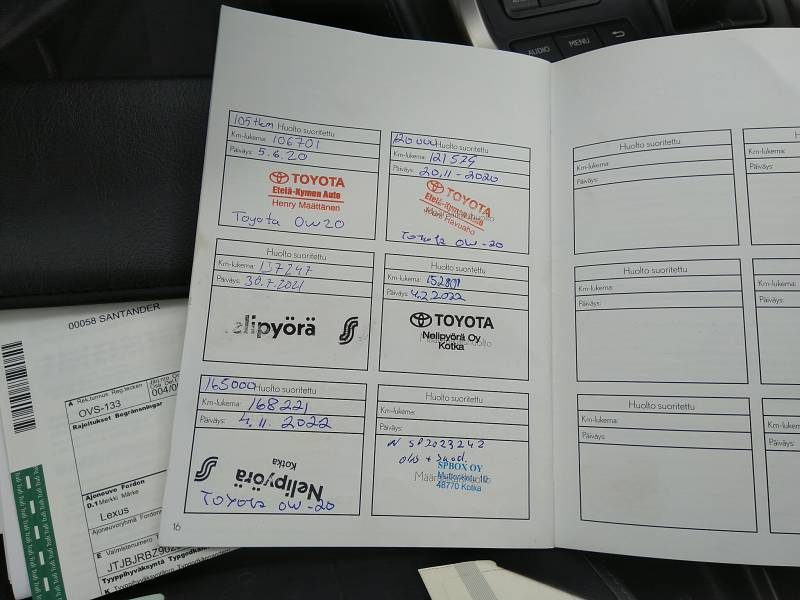 AUDIO
MENU
105tkm Huolto suoritettu
Km-lukema: 106701
Päiväys: 5.6.20
TOYOTA
Etelä-Kymen Auto
Henry Määttänen
Toyota 0W20
120000 Huolto suoritettu
Km-lukema:
Päiväys: 20.11-2020
TOYOTA
Etelä-Kymen Auto
Toyota 0W-20
Huolto suoritettu
Km-lukema: 137247
Päiväys: 30.7.2021
Nelipyörä
Huolto suoritettu
Km-lukema:
Päiväys: 4.2.2022
TOYOTA
Nelipyörä Oy
Kotka
165000 Huolto suoritettu
Km-lukema: 168221
Päiväys: 4.11.2022
Nelipyörä
Kotka
TOYOTA 0W-20
Huolto suoritettu
Km-lukema:
Päiväys:
N SP2023242
SPBOX OY
48770 Kotka
16
Huolto suoritettu
Km-lukema:
Päiväys:
Huolto suoritettu
Km-lukema:
Päiväys:
Huolto suoritettu
Km-lukema:
Päiväys
Km-lukema:
Päiväys:
Km-lukema:
Päiväys:
Päiväys:
00058 SANTANDER
A Rek.tunnus Reg.tecken
OVS-133
Rajoitukset Begränsningar
Ajoneuvo Fordon
D.1 Merkki Märke
Lexus
Ajoneuvoryhmä
E Valmistenumero
Tyyppihyväksyntä